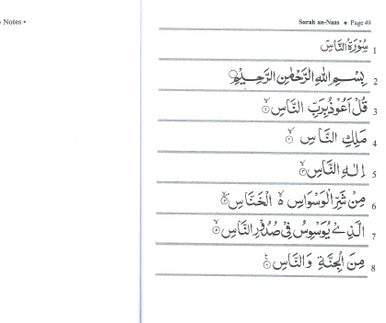 • Notes •
Surah an-Naas • Page 49
سُوْرَةُ النَّاسِ 1
بِسْمِ اللهِ الرَّحْمٰنِ الرَّحِيْمِ 2
قُلْ اَعُوْذُ بِرَبِّ النَّاسِ 3
مَلِكِ النَّاسِ 4
اِلٰهِ النَّاسِ 5
مِنْ شَرِّ الْوَسْوَاسِ ۙ الْخَنَّاسِ 6
الَّذِىْ يُوَسْوِسُ فِىْ صُدُوْرِ النَّاسِ 7
مِنَ الْجِنَّةِ وَالنَّاسِ 8